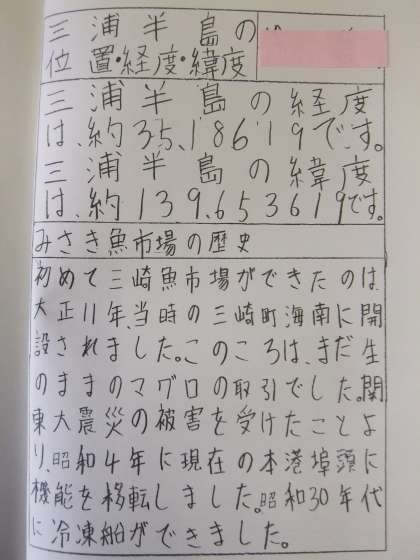 三浦半島の
位置・経度・緯度
三浦半島の経度
は、約35.18619です。
三浦半島の緯度
は、約139.653619です。
みさき魚市場の歴史
初めて三崎魚市場ができたのは、
大正11年、当時の三崎町海南に開
設されました。このころは、まだ生
のままのマグロの取引でした。関
東大震災の被害を受けたことよ
り、昭和4年に現在の本港埠頭に
機能を移転しました。昭和30年代
に冷凍船ができました。